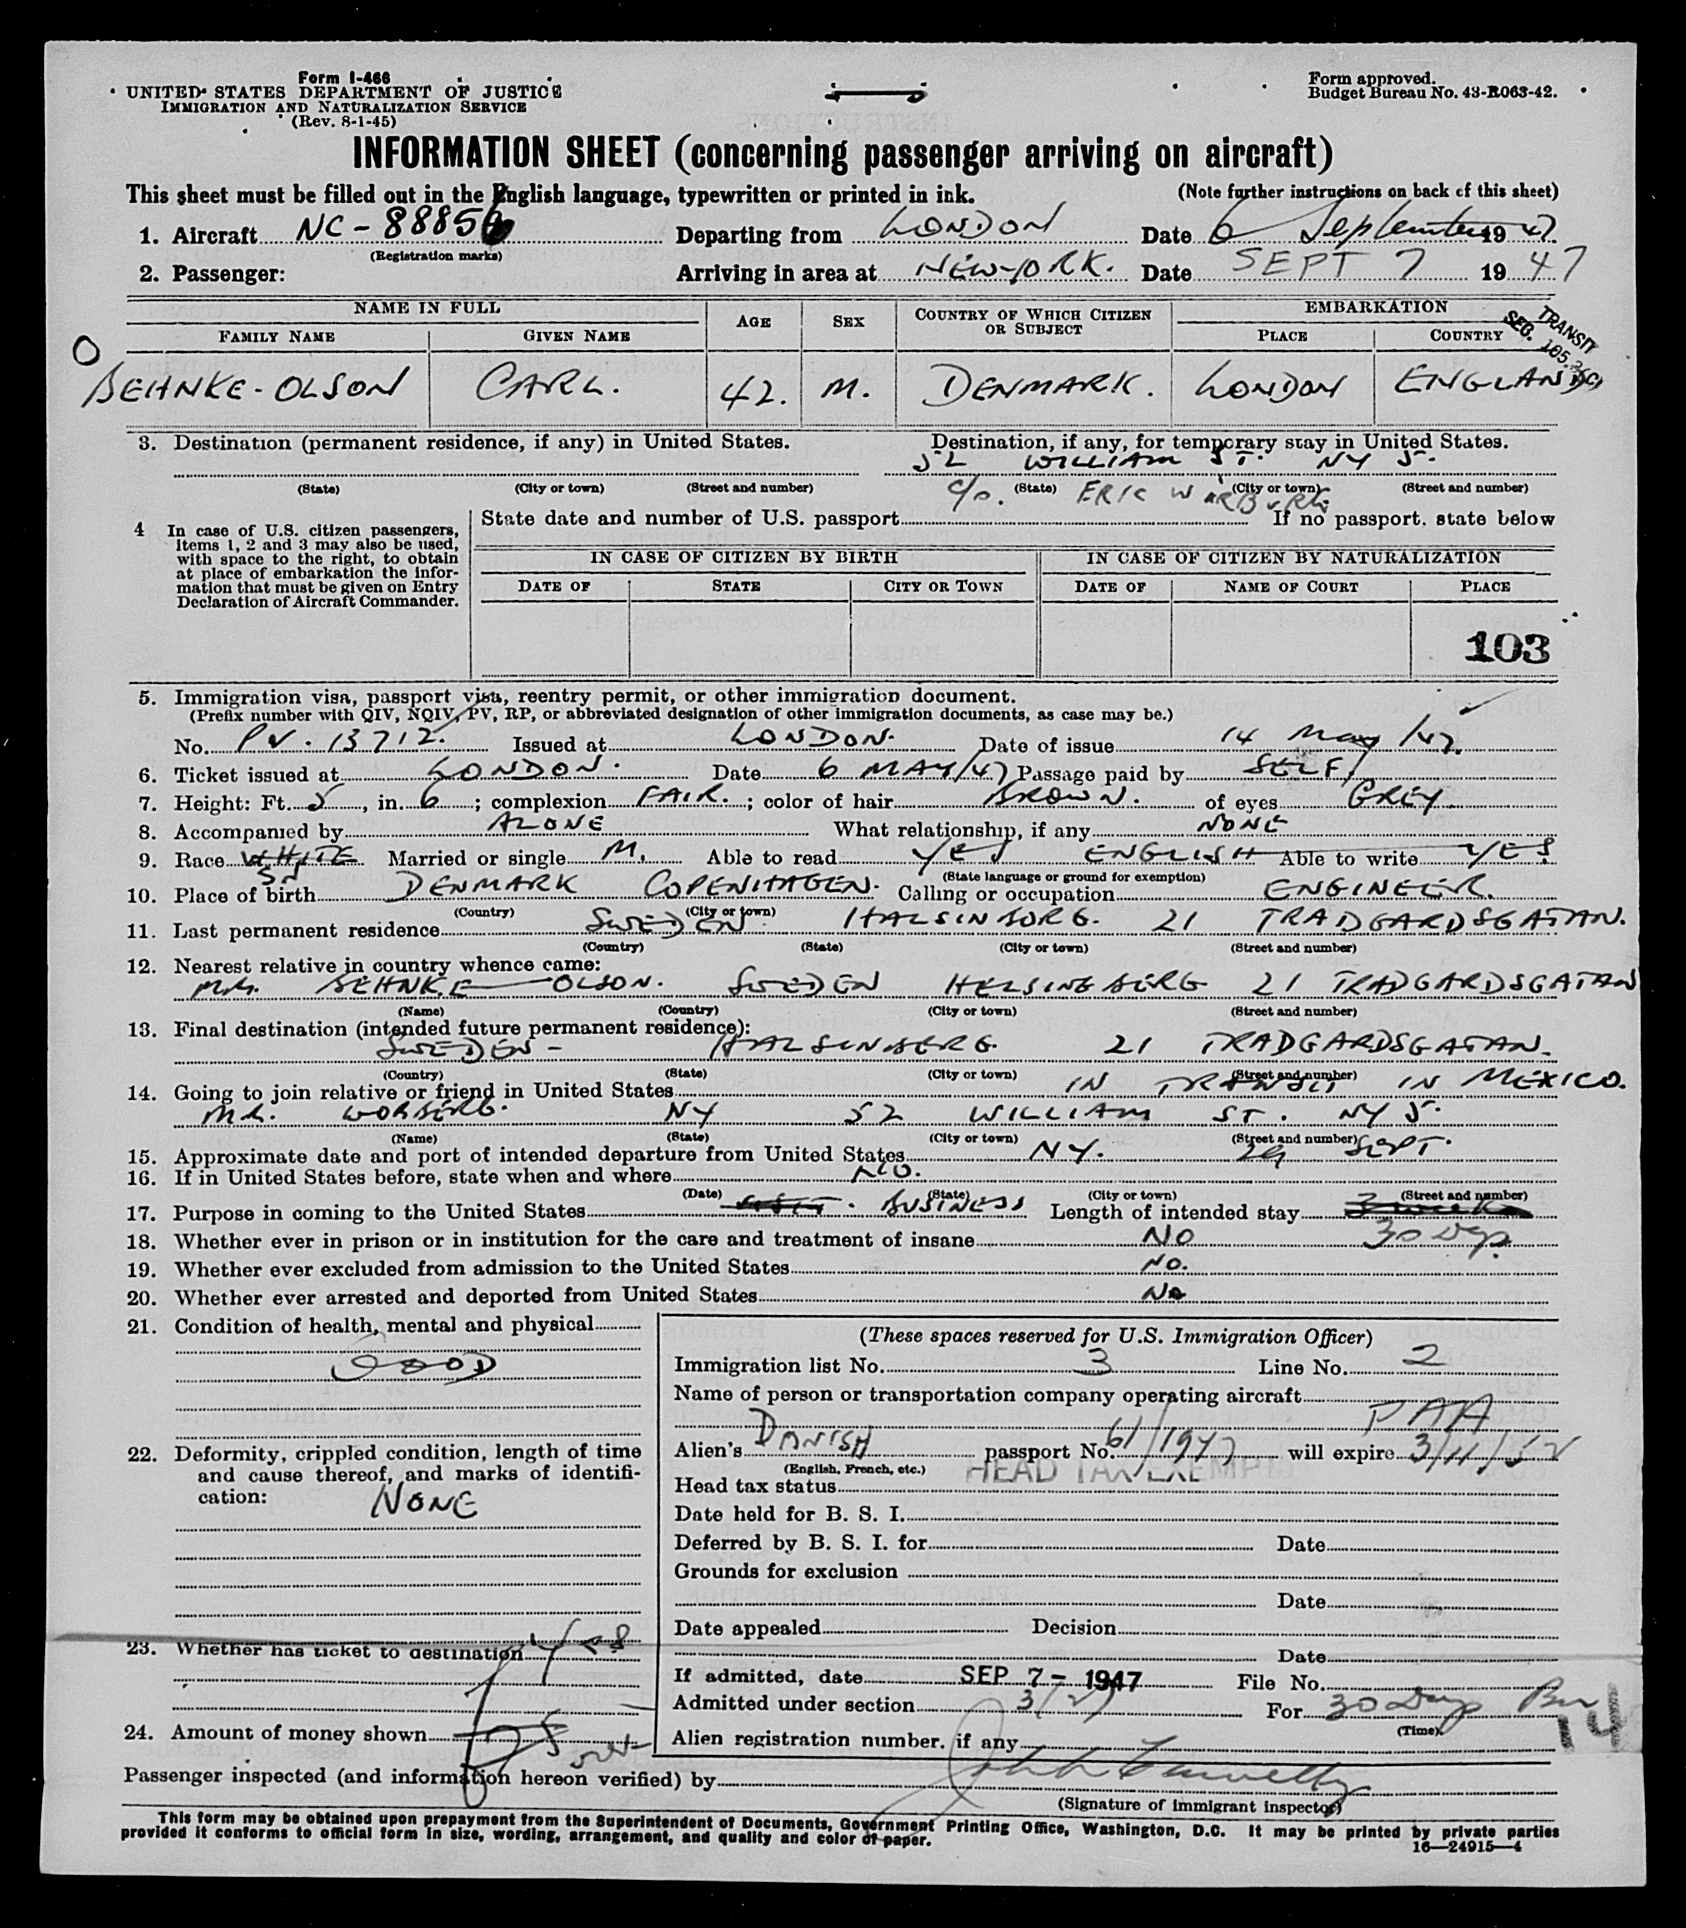 Form I-466
UNITED STATES DEPARTMENT OF JUSTICE
IMMIGRATION AND NATURALIZATION SERVICE
(Rev. 8-1-45)
Form approved.
Budget Bureau No. 43-R063-42.
INFORMATION SHEET (concerning passenger arriving on aircraft)
This sheet must be filled out in the English language, typewritten or printed in ink. (Note further instructions on back of this sheet)
1. Aircraft NC-88856 Departing from LONDON Date 6 September 1947
(Registration marks)
2. Passenger: Arriving in area at NEW-YORK. Date SEPT 7 1947
NAME IN FULL AGE SEX COUNTRY OF WHICH CITIZEN OR SUBJECT EMBARKATION
FAMILY NAME GIVEN NAME PLACE COUNTRY
TRANSIT
SEC.
BEHNKE-OLSON CARL. 42. M. DENMARK. LONDON ENGLAND
3. Destination (permanent residence, if any) in United States. Destination, if any, for temporary stay in United States.
52 WILLIAM ST. NY 5.
(State) (City or town) (Street and number) (State) (City or town) (Street and number)
c/o. ERIC WARBURG
4 In case of U.S. citizen passengers, items 1, 2 and 3 may also be used, with space to the right, to obtain at place of embarkation the information that must be given on Entry Declaration of Aircraft Commander.
State date and number of U.S. passport If no passport, state below
IN CASE OF CITIZEN BY BIRTH IN CASE OF CITIZEN BY NATURALIZATION
DATE OF STATE CITY OR TOWN DATE OF NAME OF COURT PLACE
103
5. Immigration visa, passport visa, reentry permit, or other immigration document.
(Prefix number with QIV, NQIV, PV, RP, or abbreviated designation of other immigration documents, as case may be.)
No. PV. 13712. Issued at LONDON. Date of issue 14 May /47.
6. Ticket issued at LONDON. Date 6 MAY/47 Passage paid by SELF
7. Height: Ft. 5, in. 6; complexion FAIR.; color of hair BROWN. of eyes GREY.
8. Accompanied by ALONE What relationship, if any NONE
9. Race WHITE Married or single M. Able to read YES ENGLISH Able to write YES
SN (State language or ground for exemption)
10. Place of birth DENMARK COPENHAGEN. Calling or occupation ENGINEER.
(Country) (City or town)
11. Last permanent residence SWEDEN HALSINBORG. 21 TRADGARDSGATAN.
(Country) (State) (City or town) (Street and number)
12. Nearest relative in country whence came:
BEHNKE-OLSON. SWEDEN HELSINGBERG 21 TRADGARDSGATAN
(Name) (Country) (City or town) (Street and number)
13. Final destination (intended future permanent residence):
SWEDEN - HALSINBERG 21 TRADGARDSGATAN.
(Country) (State) (City or town) (Street and number)
14. Going to join relative or friend in United States IN TRANSIT IN MEXICO.
MR. WORBERG. NY 52 WILLIAM ST. NY 5.
(Name) (State) (City or town) (Street and number)
15. Approximate date and port of intended departure from United States NY. 29 SEPT.
16. If in United States before, state when and where NO.
(Date) (State) (City or town) (Street and number)
17. Purpose in coming to the United States BUSINESS Length of intended stay 3 weeks
18. Whether ever in prison or in institution for the care and treatment of insane NO 30 Dys.
19. Whether ever excluded from admission to the United States NO.
20. Whether ever arrested and deported from United States No
21. Condition of health, mental and physical
GOOD
22. Deformity, crippled condition, length of time and cause thereof, and marks of identification:
NONE
23. Whether has ticket to destination Yes
24. Amount of money shown
(These spaces reserved for U.S. Immigration Officer)
Immigration list No. 3 Line No. 2
Name of person or transportation company operating aircraft
PAA
Alien's DANISH passport No. 61/1947 will expire 3/11/52
(English, French, etc.) HEAD TAX EXEMPT
Head tax status
Date held for B. S. I.
Deferred by B. S. I. for Date
Grounds for exclusion
Date
Date appealed Decision
Date
If admitted, date SEP 7 - 1947 File No.
Admitted under section 3(2) For 30 Days
(Time)
14
Alien registration number, if any
Passenger inspected (and information hereon verified) by
(Signature of immigrant inspector)
This form may be obtained upon prepayment from the Superintendent of Documents, Government Printing Office, Washington, D.C. It may be printed by private parties
provided it conforms to official form in size, wording, arrangement, and quality and color of paper.
16—24915—4